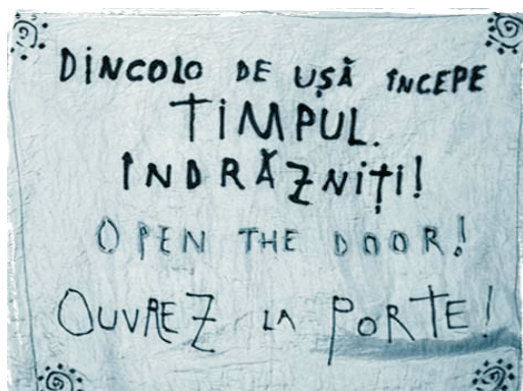 DINCOLO DE UȘĂ ÎNCEPE
TIMPUL.
ÎNDRĂZNIȚI!
OPEN THE DOOR!
OUVREZ LA PORTE!